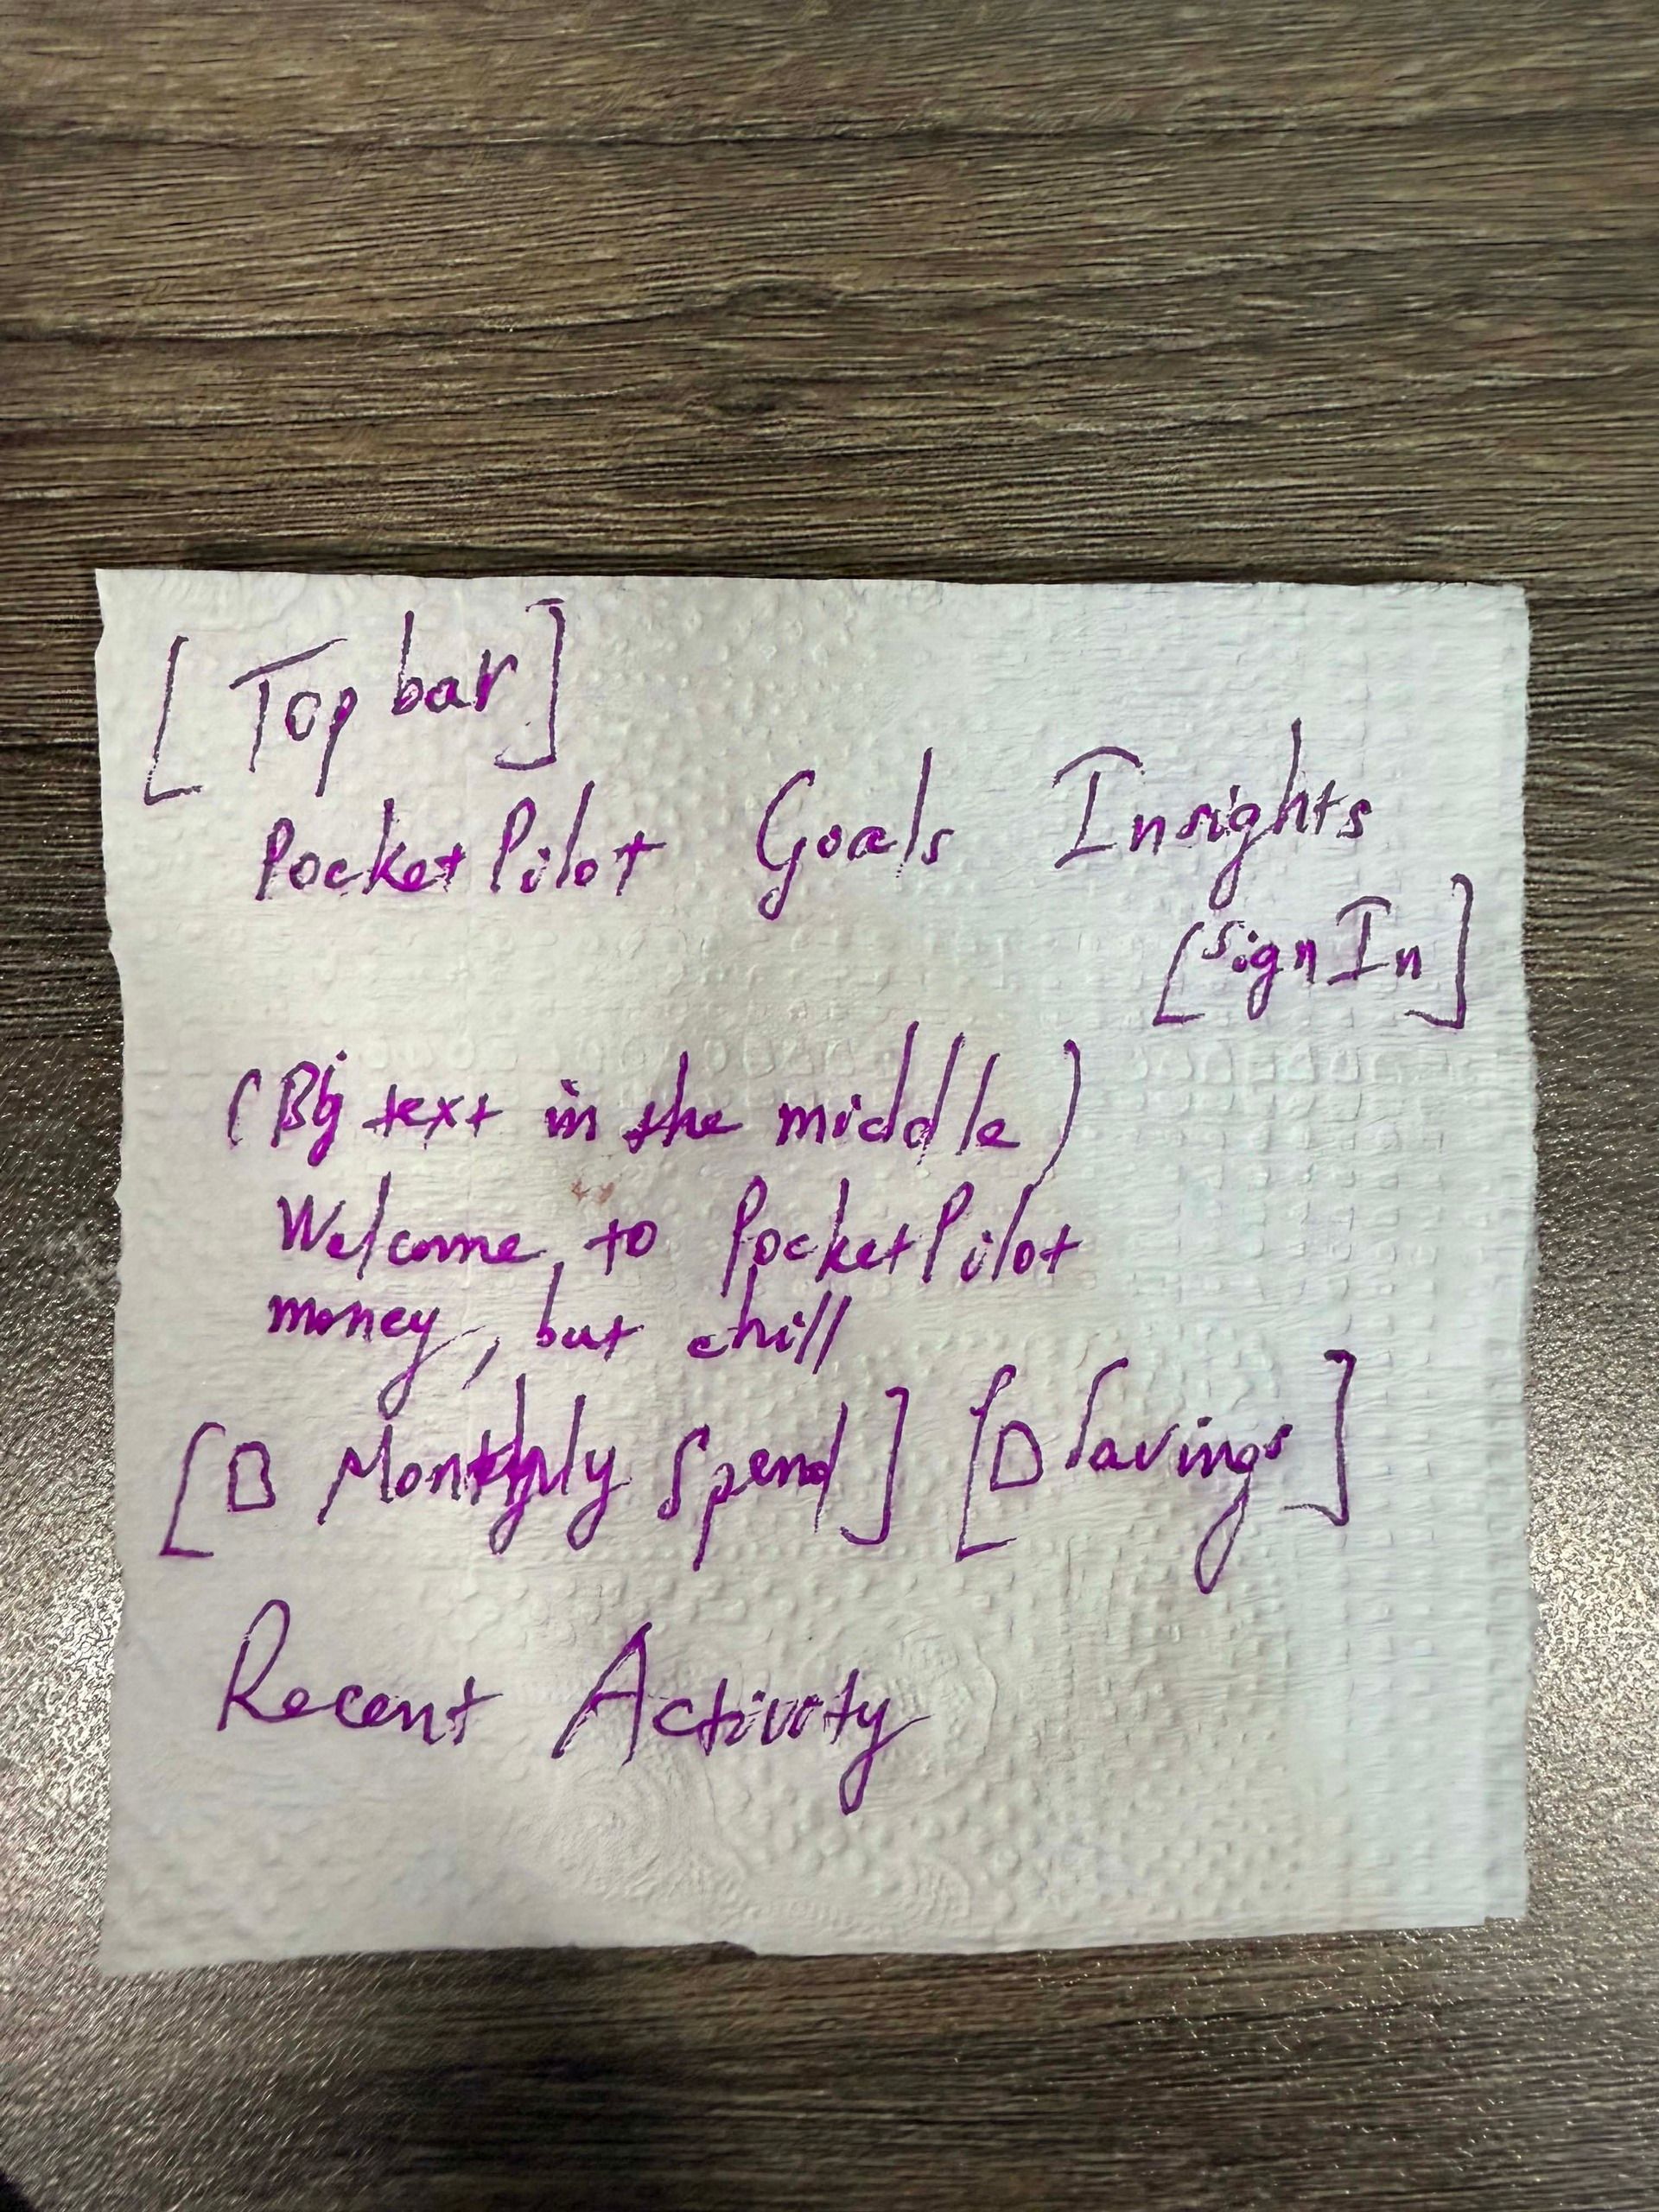 [Top bar]
PocketPilot Goals Insights
[Sign In]
(Big text in the middle)
Welcome to PocketPilot
money, but chill
[□ Monthly Spend] [□ Savings]
Recent Activity